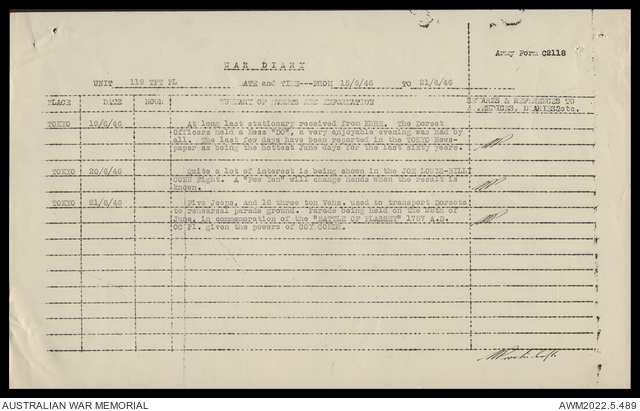 Army Form C2118
WAR DIARY
UNIT 119 TPT PL DATE and TIME---FROM 15/6/46 TO 21/6/46
PLACE DATE HOUR SUMMARY OF EVENTS AND INFORMATION REMARKS & REFERENCES TO
APPENDICES, DIARIES etc.
TOKYO 19/6/46 At long last stationary received from KURE. The Dorset
Officers held a Mess "DO", a very enjoyable evening was had by
all. The last few days have been reported in the TOKYO News-
paper as being the hottest June days for the last sixty years.
TOKYO 20/6/46 Quite a lot of interest is being shown in the JOE LOUIS-BILLY
CONN Fight. A "Few Yen" will change hands when the result is
known.
TOKYO 21/6/46 Five Jeeps, and 16 three ton Vehs. used to transport Dorsets
to rehearsal parade ground. Parade being held on the
June, in commemoration of the "BATTLE OF PLASSEY" 1757 A.D.
OC Pl. given the powers of COY COMDR.
AUSTRALIAN WAR MEMORIAL AWM2022.5.489